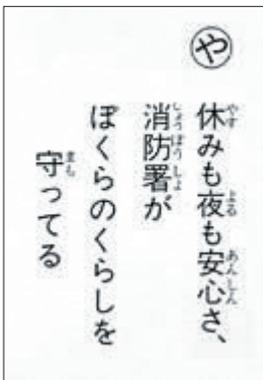 や
休みも夜も安心さ、
消防署が
ぼくらのくらしを
守ってる